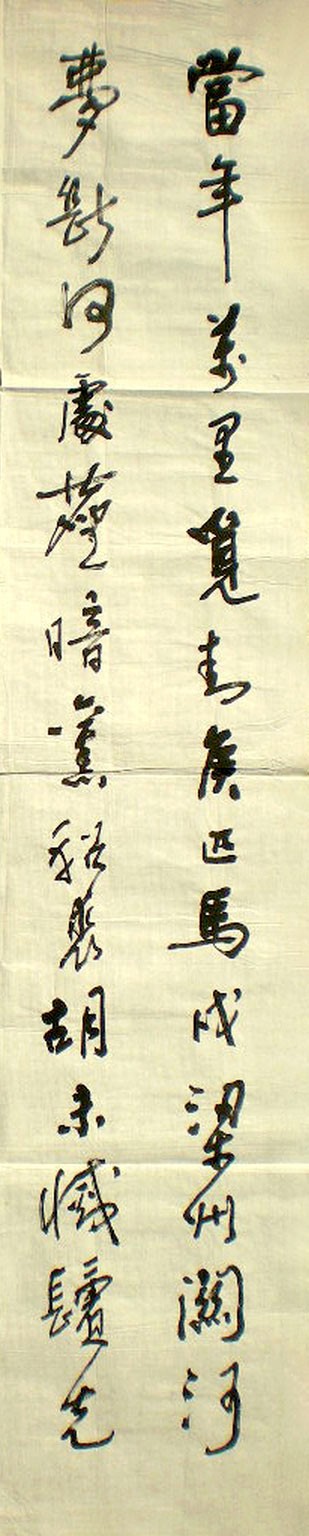 當年萬里覓封侯匹馬戍梁州關河
夢斷何處塵暗舊貂裘胡未滅鬢先